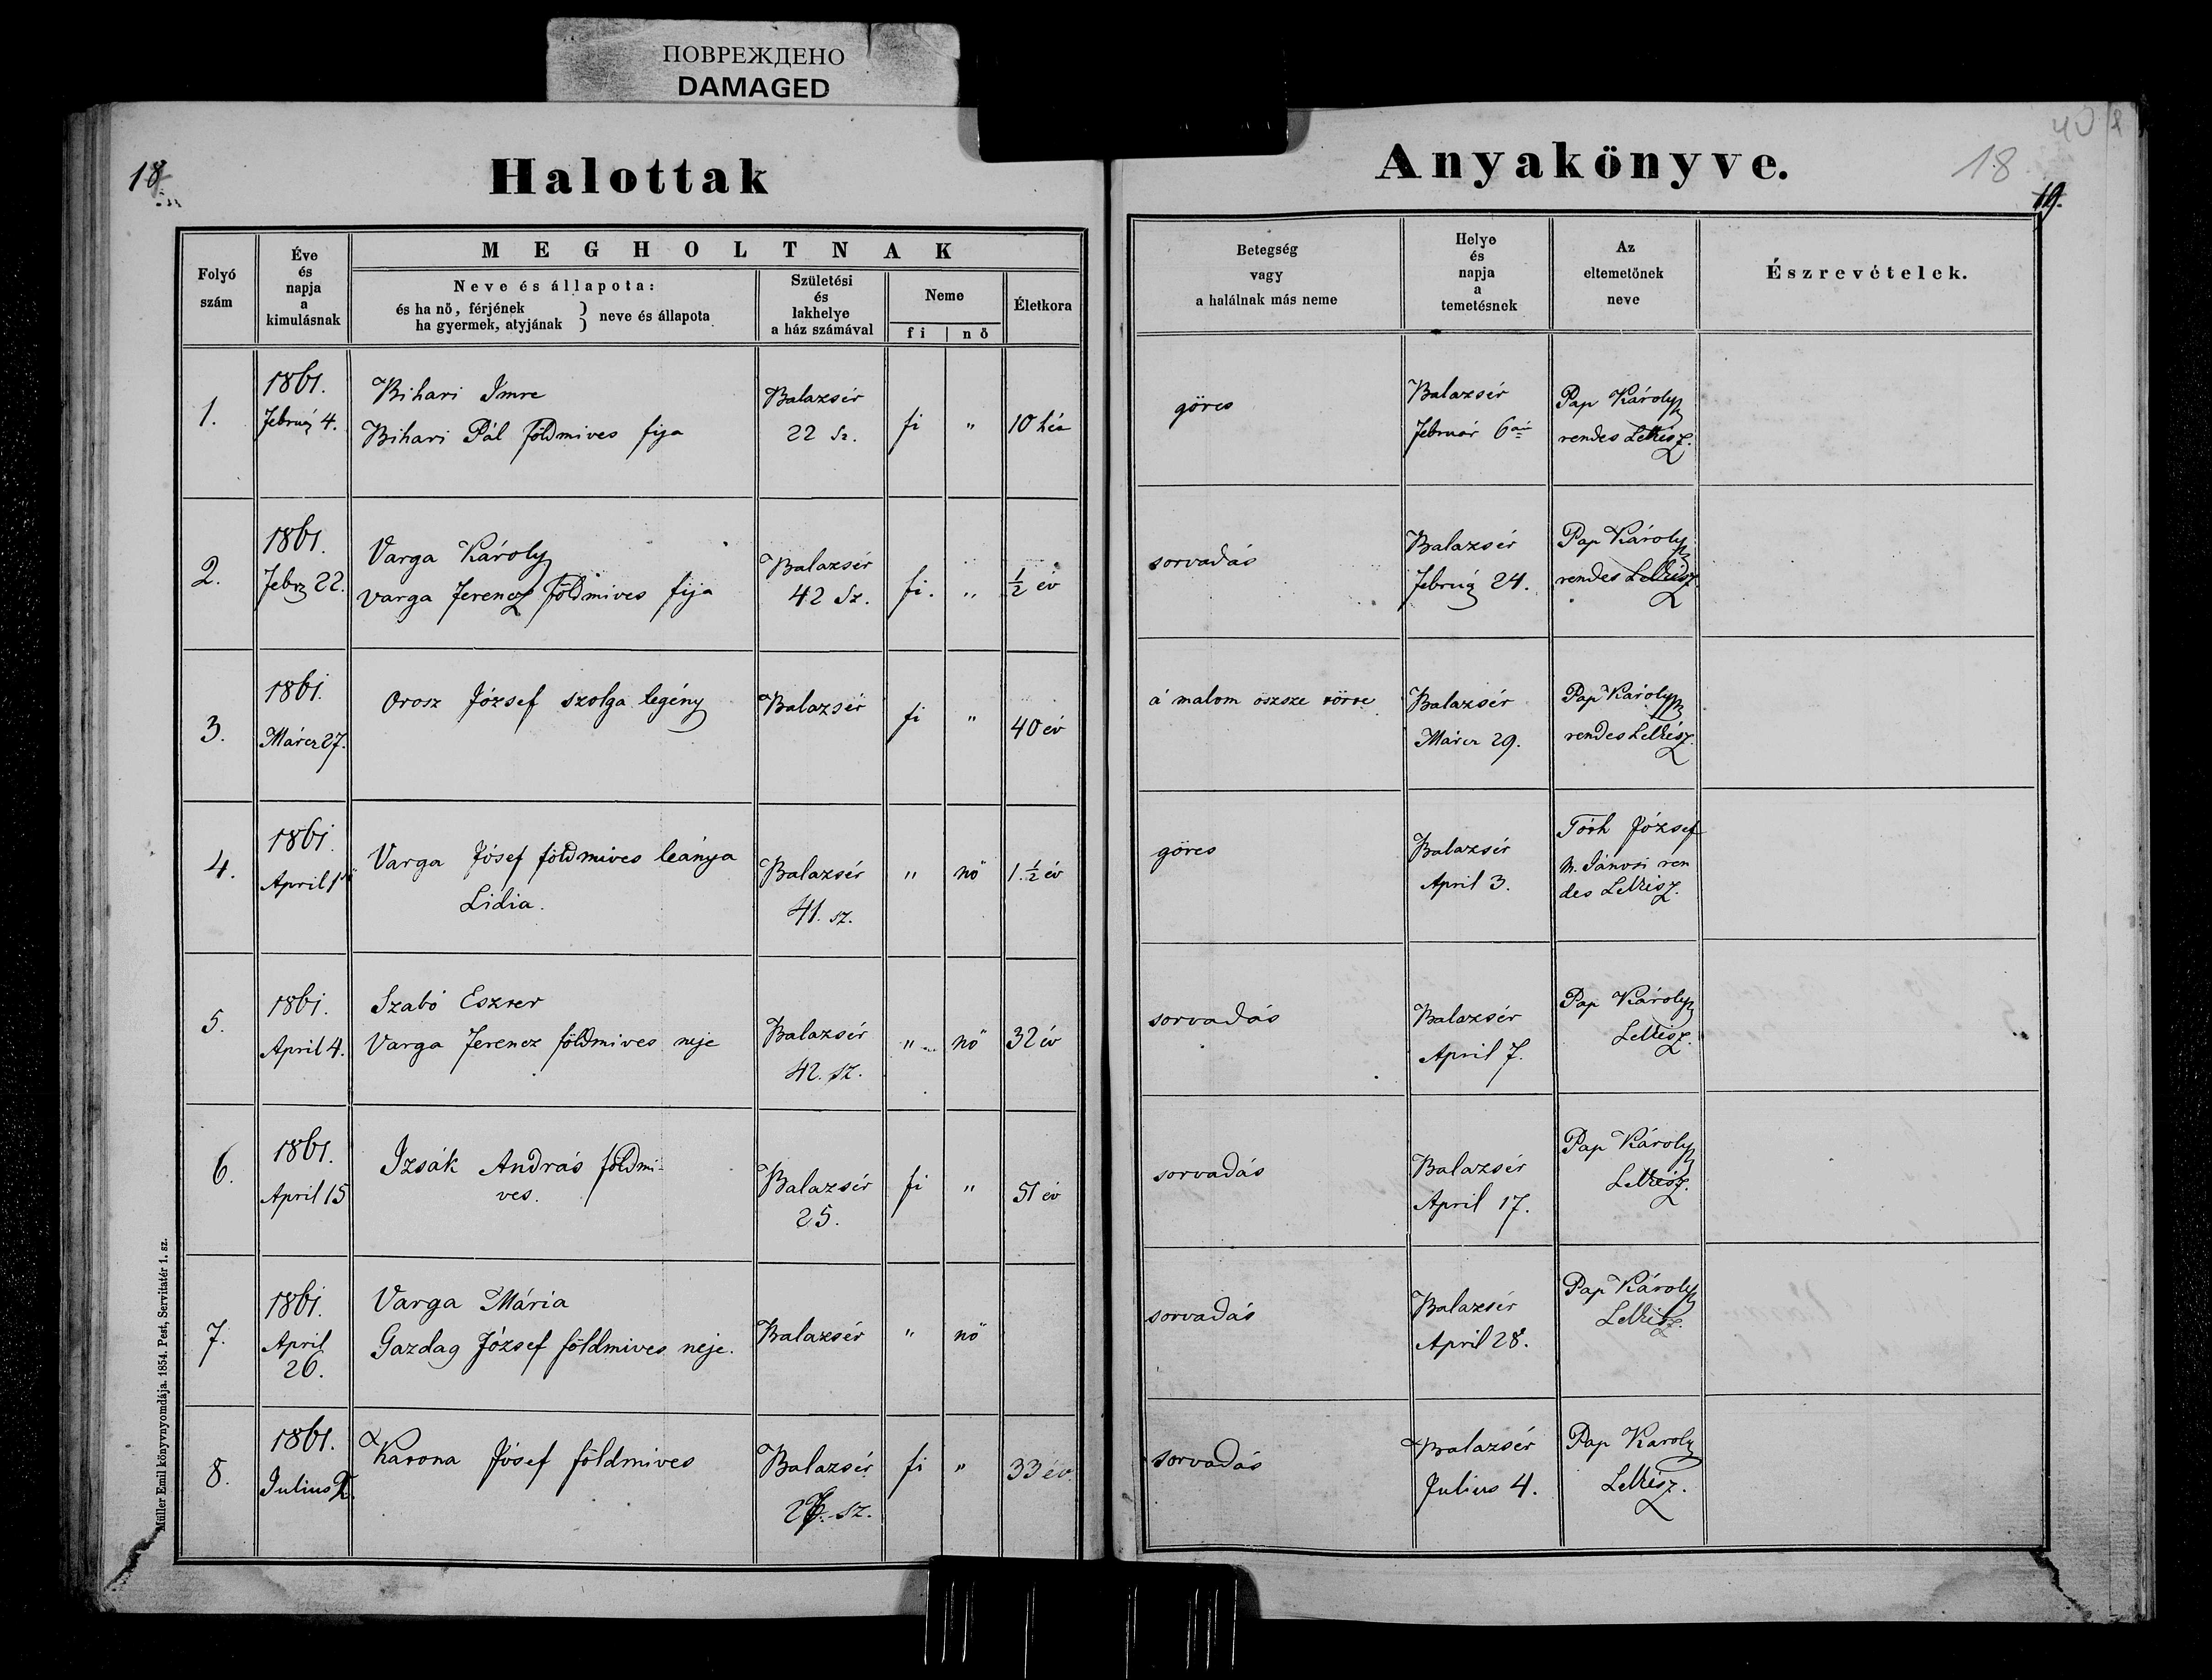 ПОВРЕЖДЕНО
DAMAGED
18
Halottak
Folyó szám
Éve és napja a kimulásnak
MEGHOLTNAK
Neve és állapota:
és ha nő, férjének
ha gyermek, atyjának
} neve és állapota
Születési és lakhelye a ház számával
Neme
fi | nő
Életkora
1.
1861.
Február 4.
Bihari Imre
Bihari Pál földmives fija
Balazsér
22 Sz.
fi
"
10 hét
2.
1861.
Febr 22.
Varga Károly
Varga Ferencz földmives fija
Balazsér
42 Sz.
fi.
"
1/2 év
3.
1861.
Márcz 27.
Orosz József szolga legény
Balazsér
fi
"
40 év
4.
1861.
April 1
Varga Jósef földmives leánya
Lidia.
Balazsér
41. sz.
"
nő
1. 1/2 év
5.
1861.
April 4.
Szabó Eszter
Varga Ferencz földmives neje
Balazsér
42. sz.
"
nő
32 év
6.
1861.
April 15
Izsák András földmi-
ves.
Balazsér
25.
fi
"
51 év
7.
1861.
April
26.
Varga Mária
Gazdag József földmives neje.
Balazsér
"
nő
8.
1861.
Julius 2.
Katona Jósef földmives
Balazsér
sz.
fi
"
33 év.
Müller Emil könyvnyomdája. 1854. Pest, Servitatér 1. sz.
Anyakönyve.
18
19.
Betegség vagy a halálnak más neme
Helye és napja a temetésnek
Az eltemetőnek neve
Észrevételek.
görcs
Balazsér
Február 6án
Pap Károly
rendes Lelkész.
sorvadás
Balazsér
Február 24.
Pap Károly
rendes Lelkész
á malom öszsze törte
Balazsér
Márcz 29.
Pap Károly
rendes Lelkész.
görcs
Balazsér
April 3.
Tóth József
M. Jánosi ren
des Lelkész.
sorvadás
Balazsér
April 7.
Pap Károly
Lelkész.
sorvadás
Balazsér
April 17.
Pap Károly
Lelkész.
sorvadás
Balazsér
April 28.
Pap Károly
Lelkész.
sorvadás
Balazsér
Julius 4.
Pap Karoly
Lelkész.